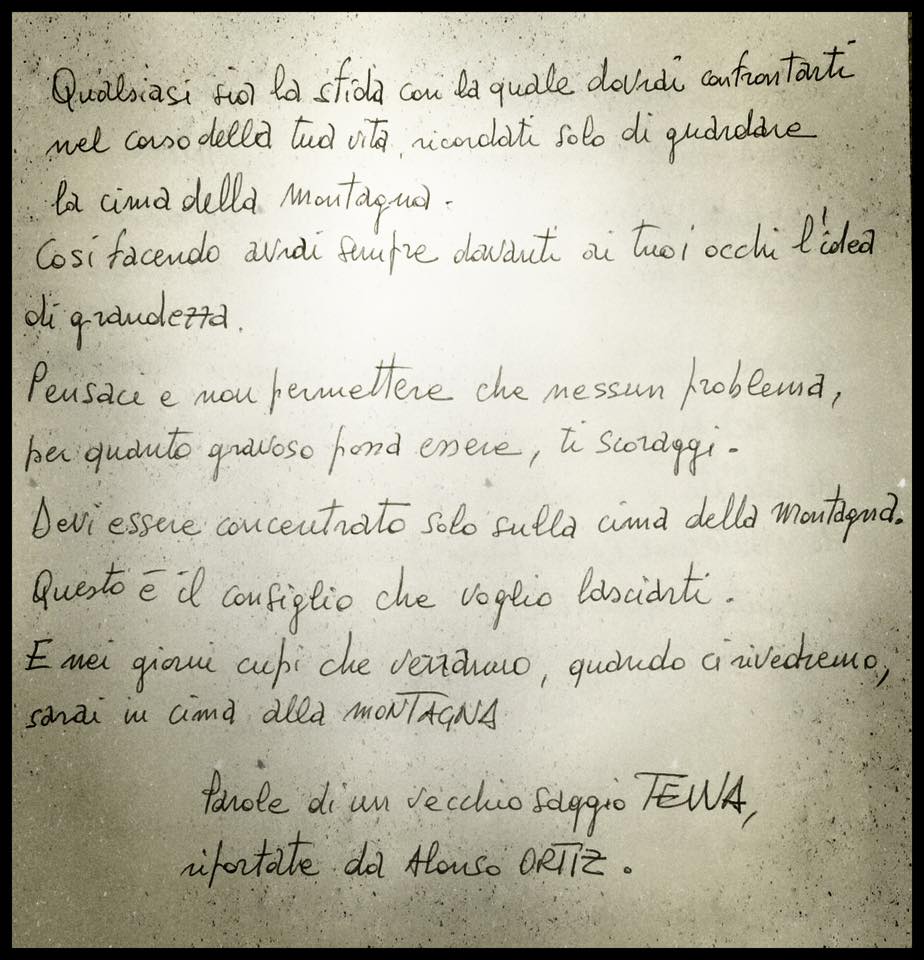 Qualsiasi sia la sfida con la quale dovrai confrontarti
nel corso della tua vita, ricordati solo di guardare
la cima della montagna.
Così facendo avrai sempre davanti ai tuoi occhi l'idea
di grandezza.
Pensaci e non permettere che nessun problema,
per quanto gravoso possa essere, ti scoraggi.
Devi essere concentrato solo sulla cima della montagna.
Questo è il consiglio che voglio lasciarti.
E nei giorni cupi che verranno, quando ci rivedremo,
sarai in cima alla MONTAGNA
Parole di un vecchio saggio TEWA,
riportate da Alonso ORTIZ.